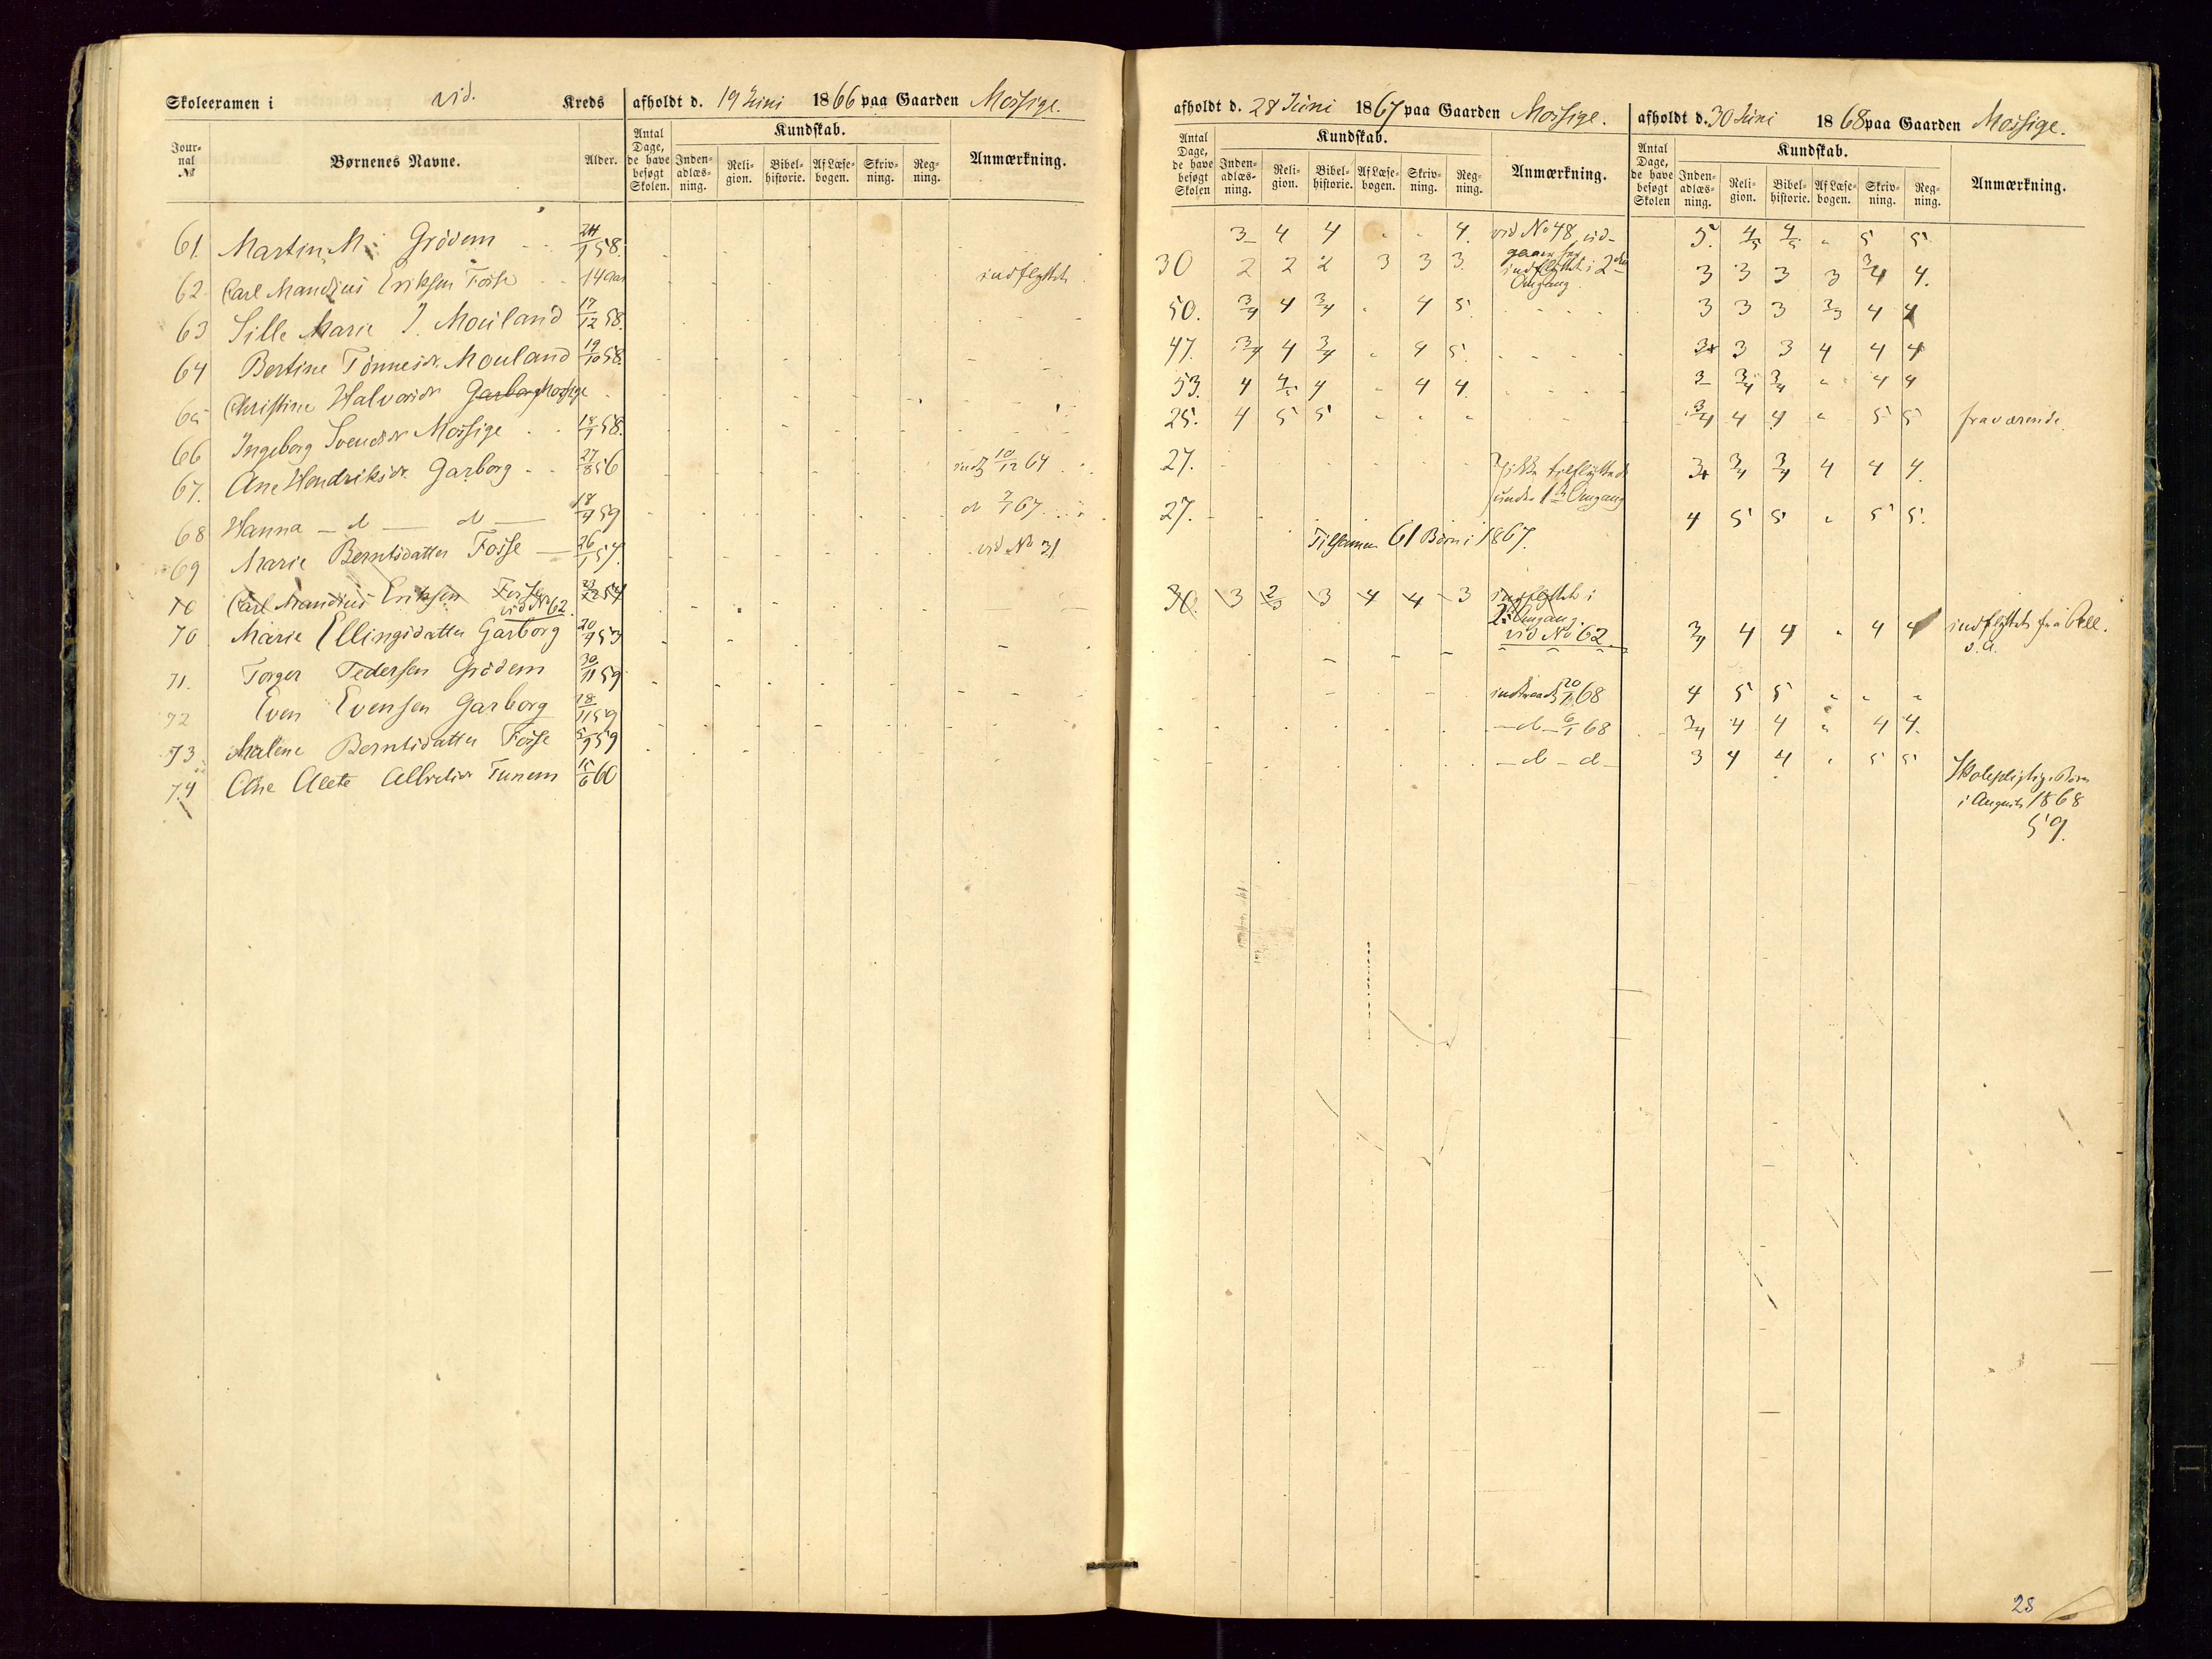 Skoleexamen i vid. Kreds afholdt d. 19 Juni 1866 paa Gaarden Mossige.
Jour-nal № Børnenes Navne. Alder. Antal Dage, de have besøgt Skolen. Kundskab. Inden-adlæs-ning. Reli-gion. Bibel-historie. Af Læse-bogen. Skriv-ning. Reg-ning. Anmærkning.
61. Martin M. Grödem 24/1 58.
62 Carl Mandius Eriksen Fosse 14 Aar indflyttet
63 Sille Marie J. Mouland 17/12 58.
64 Bertine Tönnesdr. Mouland 19/10 58.
65 Christine Halvorsdr Garborg Mossige
66 Ingeborg Svendsdr Mossige 18/7 58.
67. Ane Hendriksdr. Garborg 27/8 56 indt 10/12 64
68 Hanna — d — d — 18/9 59 d 7/7 67
69 Marie Berntsdatter Fosse — 26/1 57. vid No 31
70 Carl Mandius Eriksen Fosse 54
vid No 62.
70 Marie Ellingsdatter Garborg 20/9 53
71. Torger Pedersen Grödem 30/11 59
72 Even Evensen Garborg 18/11 59
73 Malene Berntsdatter Fosse 5/9 59
74 Ane Alete Albretsdr Tunem 15/6 60
afholdt d. 28 Juni 1867 paa Gaarden Mossige.
Antal Dage, de have besøgt Skolen Kundskab. Inden-adlæs-ning. Reli-gion. Bibel-historie. Af Læse-bogen. Skriv-ning. Reg-ning. Anmærkning.
3 4 4 " " 4. vid No 48 ud-
30 2 2 2 3 3 3. indflyttet i 2den
Omgang.
50. 3/4 4 3/4 " 4 5.
47. 3/4 4 3/4 " 4 5.
53. 4 4/5 4 " 4 4.
25. 4 5 5 " " "
27. ikke tilflyttede
under 1ste Omgang
27.
Tilsamen 61 Børn i 1867.
30. 3 2/3 3 4 4 3 indflyttet i
2den Omgang.
vid No 62.
indtraadt 20/1 68
— d — 6/1 68
— d — d —
afholdt d. 30 Juni 1868 paa Gaarden Mossige.
Antal Dage, de have besøgt Skolen Kundskab. Inden-adlæs-ning. Reli-gion. Bibel-historie. Af Læse-bogen. Skriv-ning. Reg-ning. Anmærkning.
5. 4/5 4/5 " 5 5
3 3 3 3 3/4 4.
3 3 3 3/3 4 4
3+ 3 3 4 4 4
3 3/4 3/4 " 4 4
3/4 4 4 " 5 5 fraværende.
3+ 3/4 3/4 4 4 4.
4 5 5 " 5 5.
3/4 4 4 " 4 4 indflyttet fra
4 5 5 " " "
3/4 4 4 " 4 4.
3 4 4 " 5 5
Skolepligtige Børn
i August 1868
59.
28